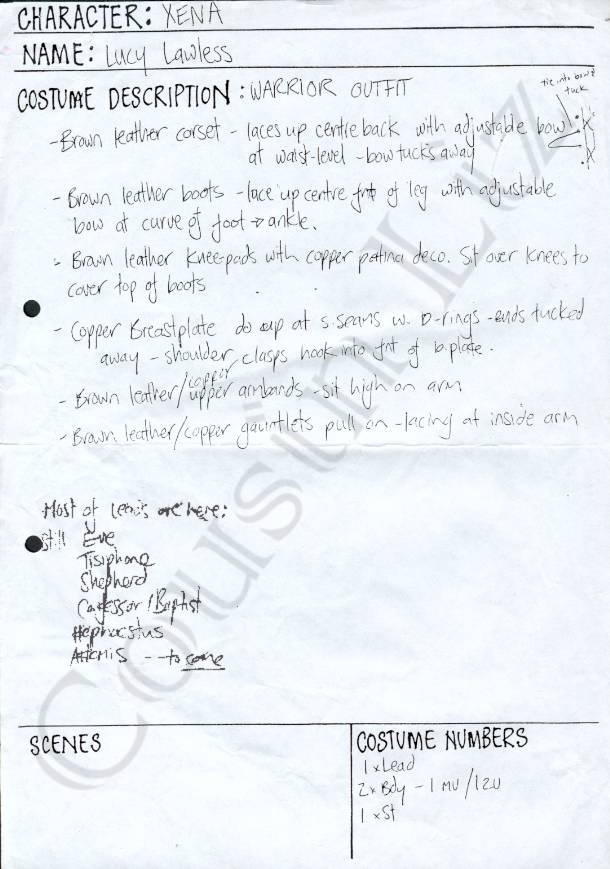 CHARACTER: XENA
NAME: Lucy Lawless
COSTUME DESCRIPTION: WARRIOR OUTFIT
tie into bow & tuck
- Brown leather corset - laces up centre back with adjustable bow
at waist-level - bow tucks away
- Brown leather boots - lace up centre frnt of leg with adjustable
bow at curve of foot → ankle.
- Brown leather knee-pads with copper patina deco. Sit over knees to
cover top of boots
- Copper Breastplate do up at s.seams w. D-rings - ends tucked
away - shoulder clasps hook into frnt of b.plate.
- Brown leather/copper upper armbands - sit high on arm
- Brown leather/copper gauntlets pull on - lacing at inside arm
Most of are here:
Still Eve
Tisiphone
Shepherd
/ Baptist
Hephaestus
Artemis -- to come
SCENES
COSTUME NUMBERS
1 x Lead
2 x Bdy - 1 MU / 12U
1 x St
Cousin Liz